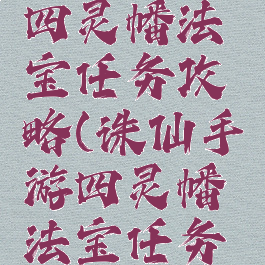 四灵幡法
宝任务攻
略(诛仙手
游四灵幡
法宝任务